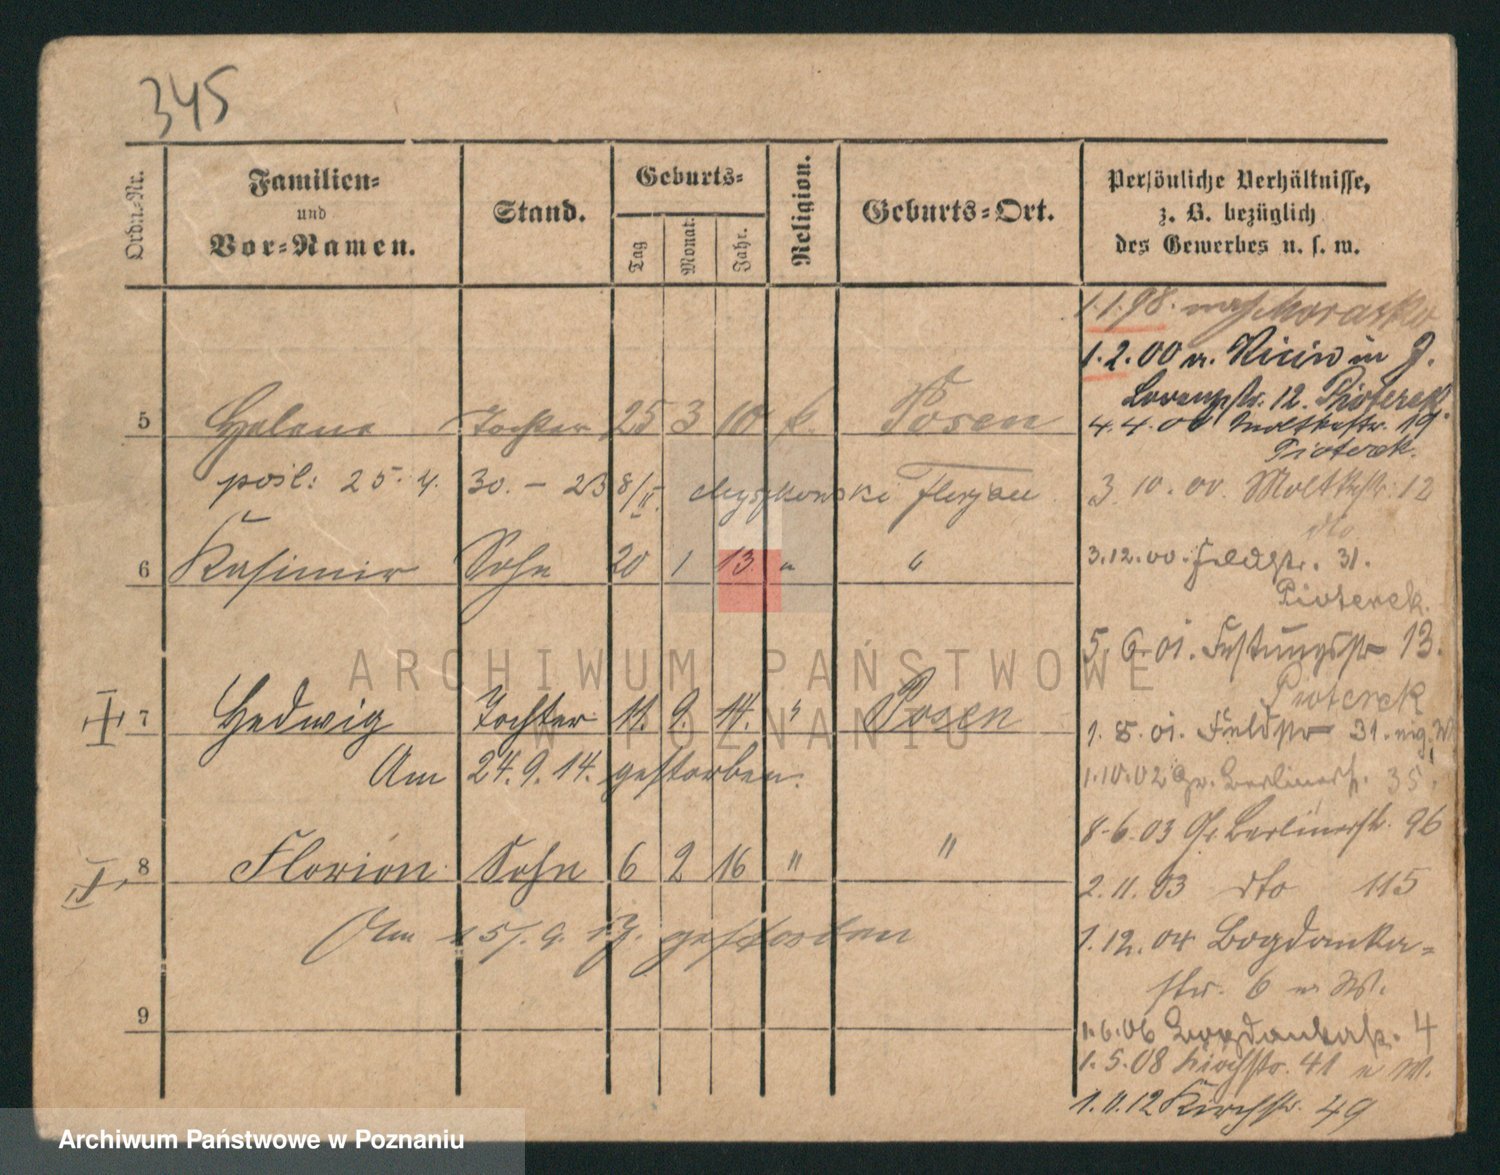 345
Ordn.-Nr.
Familien-
und
Vor-Namen.
Stand.
Geburts-
Tag
Monat.
Jahr.
Religion.
Geburts-Ort.
Persönliche Verhältnisse,
z. B. bezüglich
des Gewerbes u. s. w.
1.1.98.
1.2.00 in J.
Lorenzstr. 12. Pioterek
5 Helene Tochter 25 3 10 k. Posen
4.4.00 Moltkestr. 19.
Pioterek.
25.4. 30. - 23 8/II. Myszkowski Florjan
3.10.00. Moltkestr. 12
dto
6 Kasimir Sohn 20 1 13. " "
3.12.00. Feldstr. 31.
Pioterek.
5.6.01. Festungsstr 13.
Pioterek
7 Hedwig Tochter 11. 9. 14. " Posen
1.8.01. Feldstr 31.
Am 24.9.14. gestorben.
1.10.02 Gr. Berlinerstr. 35.
8.6.03 Gr. Berlinerstr. 96
8 Florian Sohn 6 2 16 " "
2.11.03 dto 115
Am 15/.9. 17. gestorben
1.12.04 Bogdanka-
str. 6 n W.
9
1.6.06 Bogdankastr. 4
1.5.08 Kirchstr. 41 n W.
1.11.12 Kirchstr. 49
ARCHIWUM PAŃSTWOWE
W POZNANIU
Archiwum Państwowe w Poznaniu